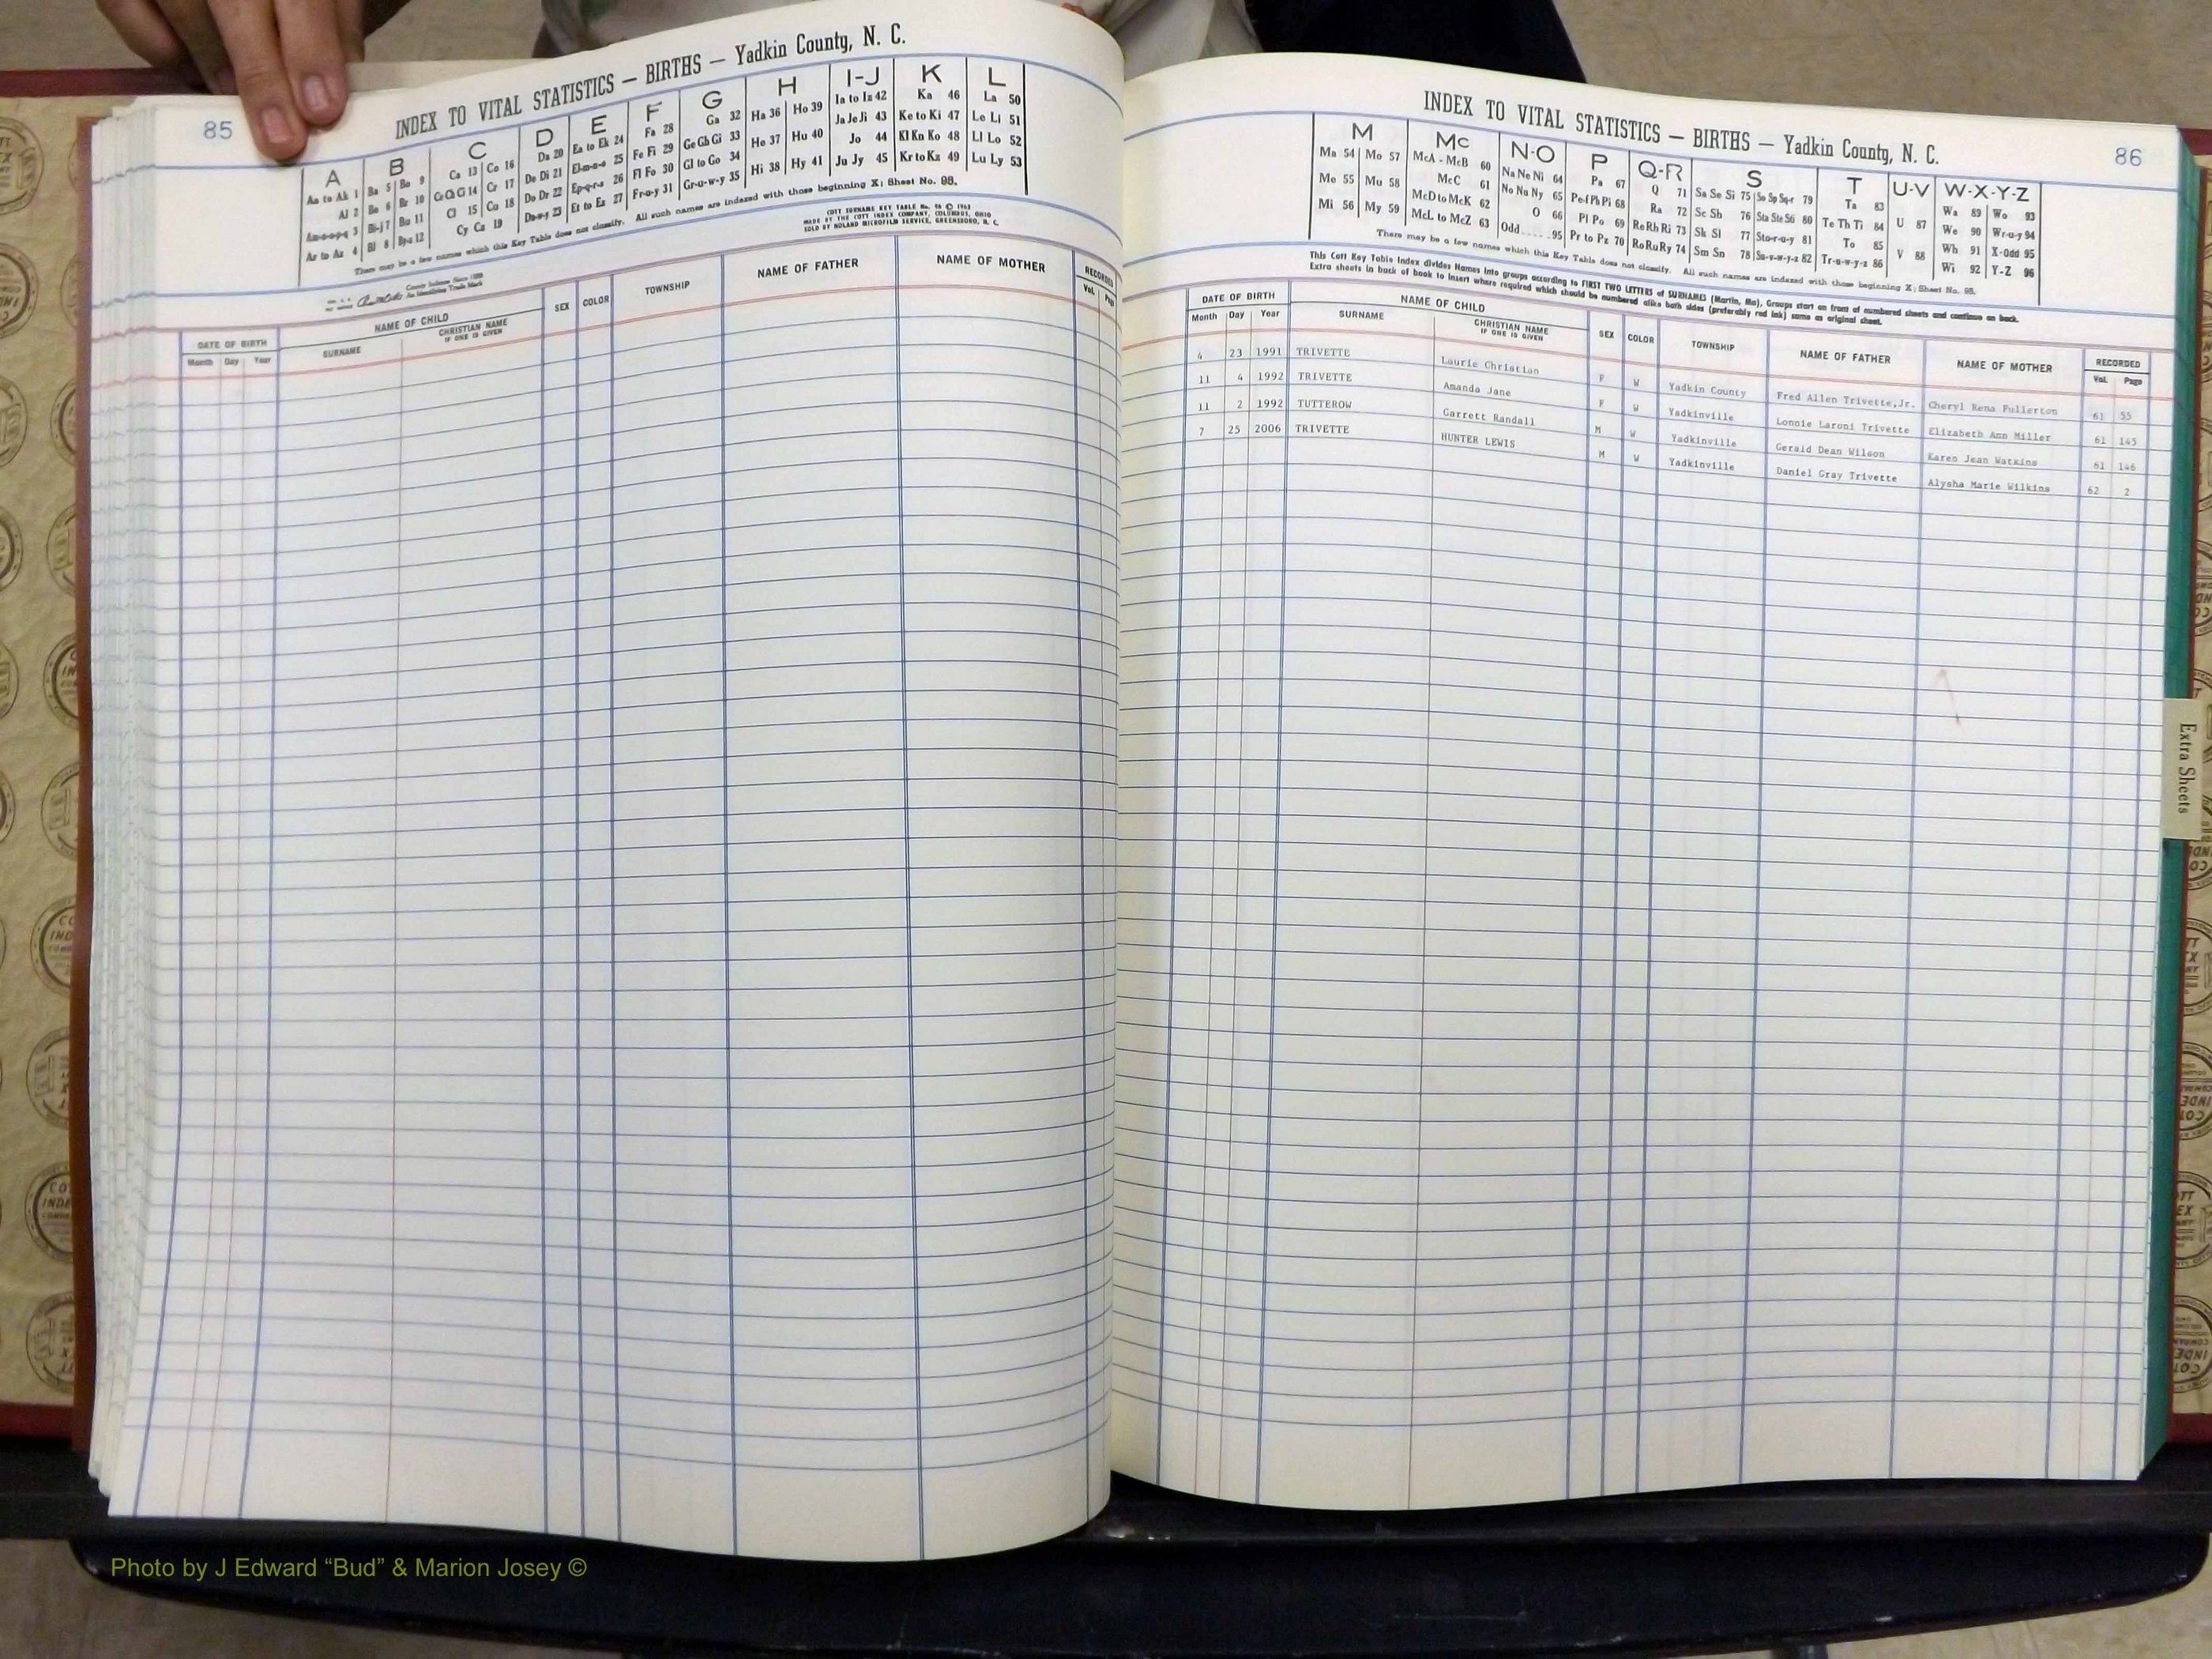 85
INDEX TO VITAL STATISTICS — BIRTHS — Yadkin County, N. C.
A B C D E F G H I-J K L
Aa to Ak 1 Ba 5 Bo 9 Ca 13 Co 16 Da 20 Ea to Ek 24 Fa 28 Ga 32 Ha 36 Ho 39 Ia to Iz 42 Ka 46 La 50
Al 2 Be 6 Br 10 Ce Ch Ci 14 Cr 17 De Di 21 El-m-n-o 25 Fe Fi 29 Ge Gh Gi 33 He 37 Hu 40 Ja Je Ji 43 Ke to Ki 47 Le Li 51
Am-n-o-p-q 3 Bi-j 7 Bu 11 Cl 15 Cu 18 Do Dr 22 Ep-q-r-s 26 Fl Fo 30 Gl to Go 34 Hi 38 Hy 41 Jo 44 Kl Kn Ko 48 Ll Lo 52
Ar to Az 4 Bl 8 By-z 12 Cy Cz 19 Du-w-y 23 Et to Ez 27 Fr-u-y 31 Gr-u-w-y 35 Ju Jy 45 Kr to Kz 49 Lu Ly 53
There may be a few names which this Key Table does not classify. All such names are indexed with those beginning X; Sheet No. 95.
COTT SURNAME KEY TABLE No. 96 © 1963
MADE BY THE COTT INDEX COMPANY, COLUMBUS, OHIO
SOLD BY NOLAND MICROFILM SERVICE, GREENSBORO, N. C.
County Indexes Since 1888
An Identifying Trade Mark
DATE OF BIRTH NAME OF CHILD SEX COLOR TOWNSHIP NAME OF FATHER NAME OF MOTHER RECORDED
Month Day Year SURNAME CHRISTIAN NAME IF ONE IS GIVEN Vol. Page
86
INDEX TO VITAL STATISTICS — BIRTHS — Yadkin County, N. C.
M Mc N-O P Q-R S T U-V W-X-Y-Z
Ma 54 Mo 57 McA - McB 60 Na Ne Ni 64 Pa 67 Q 71 Sa Se Si 75 So Sp Sq-r 79 Ta 83 U 87 Wa 89 Wo 93
Me 55 Mu 58 McC 61 No Nu Ny 65 Pe-f Ph Pi 68 Ra 72 Sc Sh 76 Sta Ste Sti 80 Te Th Ti 84 V 88 We 90 Wr-u-y 94
Mi 56 My 59 McD to McK 62 O 66 Pl Po 69 Re Rh Ri 73 Sk Sl 77 Sto-r-u-y 81 To 85 Wh 91 X-Odd 95
McL to McZ 63 Odd.....95 Pr to Pz 70 Ro Ru Ry 74 Sm Sn 78 Su-v-w-y-z 82 Tr-u-w-y-z 86 Wi 92 Y-Z 96
There may be a few names which this Key Table does not classify. All such names are indexed with those beginning X; Sheet No. 95.
This Cott Key Table Index divides Names into groups according to FIRST TWO LETTERS of SURNAMES (Martin, Ma). Groups start on front of numbered sheets and continue on back.
Extra sheets in back of book to insert where required which should be numbered alike both sides (preferably red ink) same as original sheet.
DATE OF BIRTH NAME OF CHILD SEX COLOR TOWNSHIP NAME OF FATHER NAME OF MOTHER RECORDED
Month Day Year SURNAME CHRISTIAN NAME IF ONE IS GIVEN Vol. Page
4 23 1991 TRIVETTE Laurie Christian F W Yadkin County Fred Allen Trivette,Jr. Cheryl Rena Fullerton 61 55
11 4 1992 TRIVETTE Amanda Jane F W Yadkinville Lonnie Laroni Trivette Elizabeth Ann Miller 61 145
11 2 1992 TUTTEROW Garrett Randall M W Yadkinville Gerald Dean Wilson Karen Jean Watkins 61 146
7 25 2006 TRIVETTE HUNTER LEWIS M W Yadkinville Daniel Gray Trivette Alysha Marie Wilkins 62 2
Extra Sheets
Photo by J Edward “Bud” & Marion Josey ©